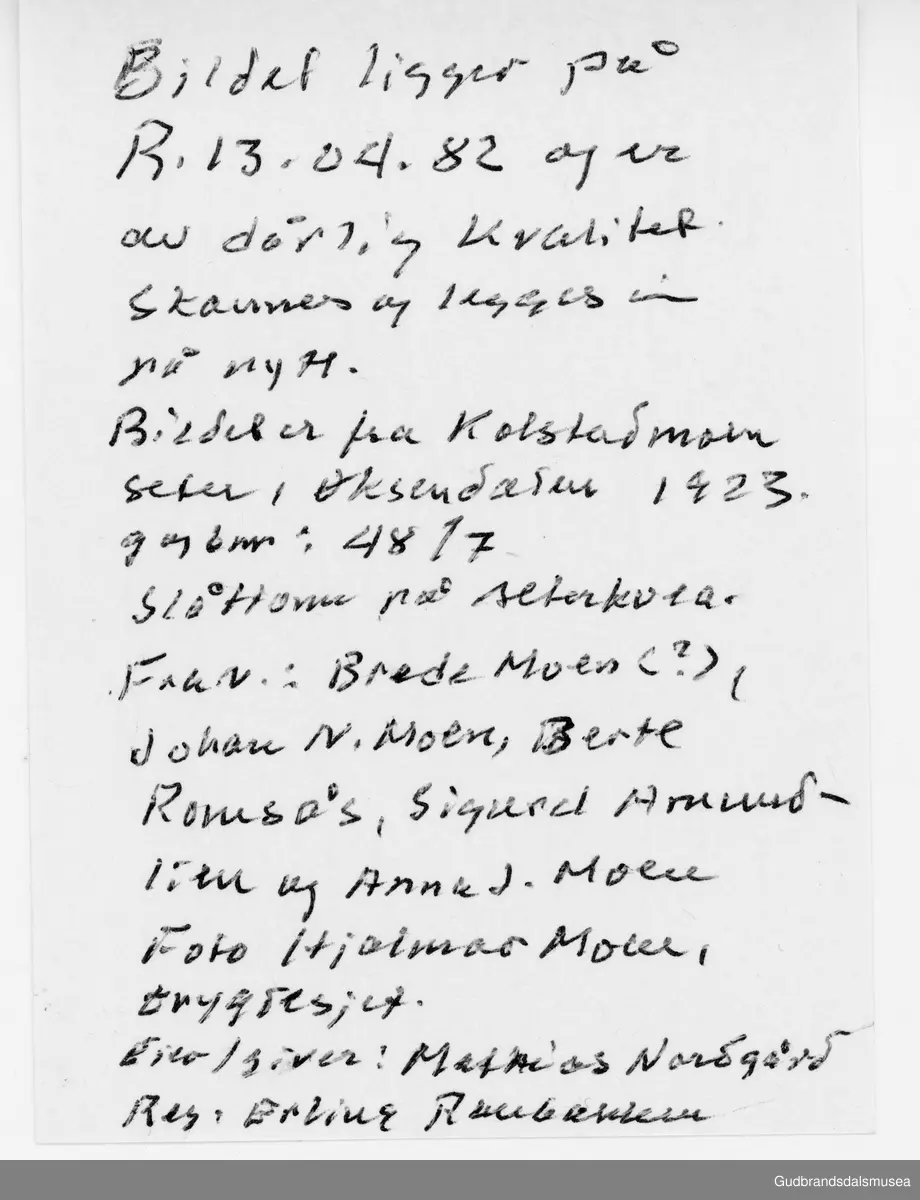 Bildet ligger på
R.13.04.82 og er
av dårlig kvalitet.
Skannes og legges inn
på nytt.
Bildet er fra Kolstadmoen
seter, Øksendalen 1923.
g og bnr: 48/7
Slåttonn på seterkvea.
Fra v.: Brede Moen (?),
Johan N. Moen, Berte
Romsås, Sigurd Amund-
lien og Anna J. Moen
Foto Hjalmar Moen,
Øygardsjet.
Eier/giver: Mathias Nordgård
Reg: Erling Raubakken
Gudbrandsdalsmusea